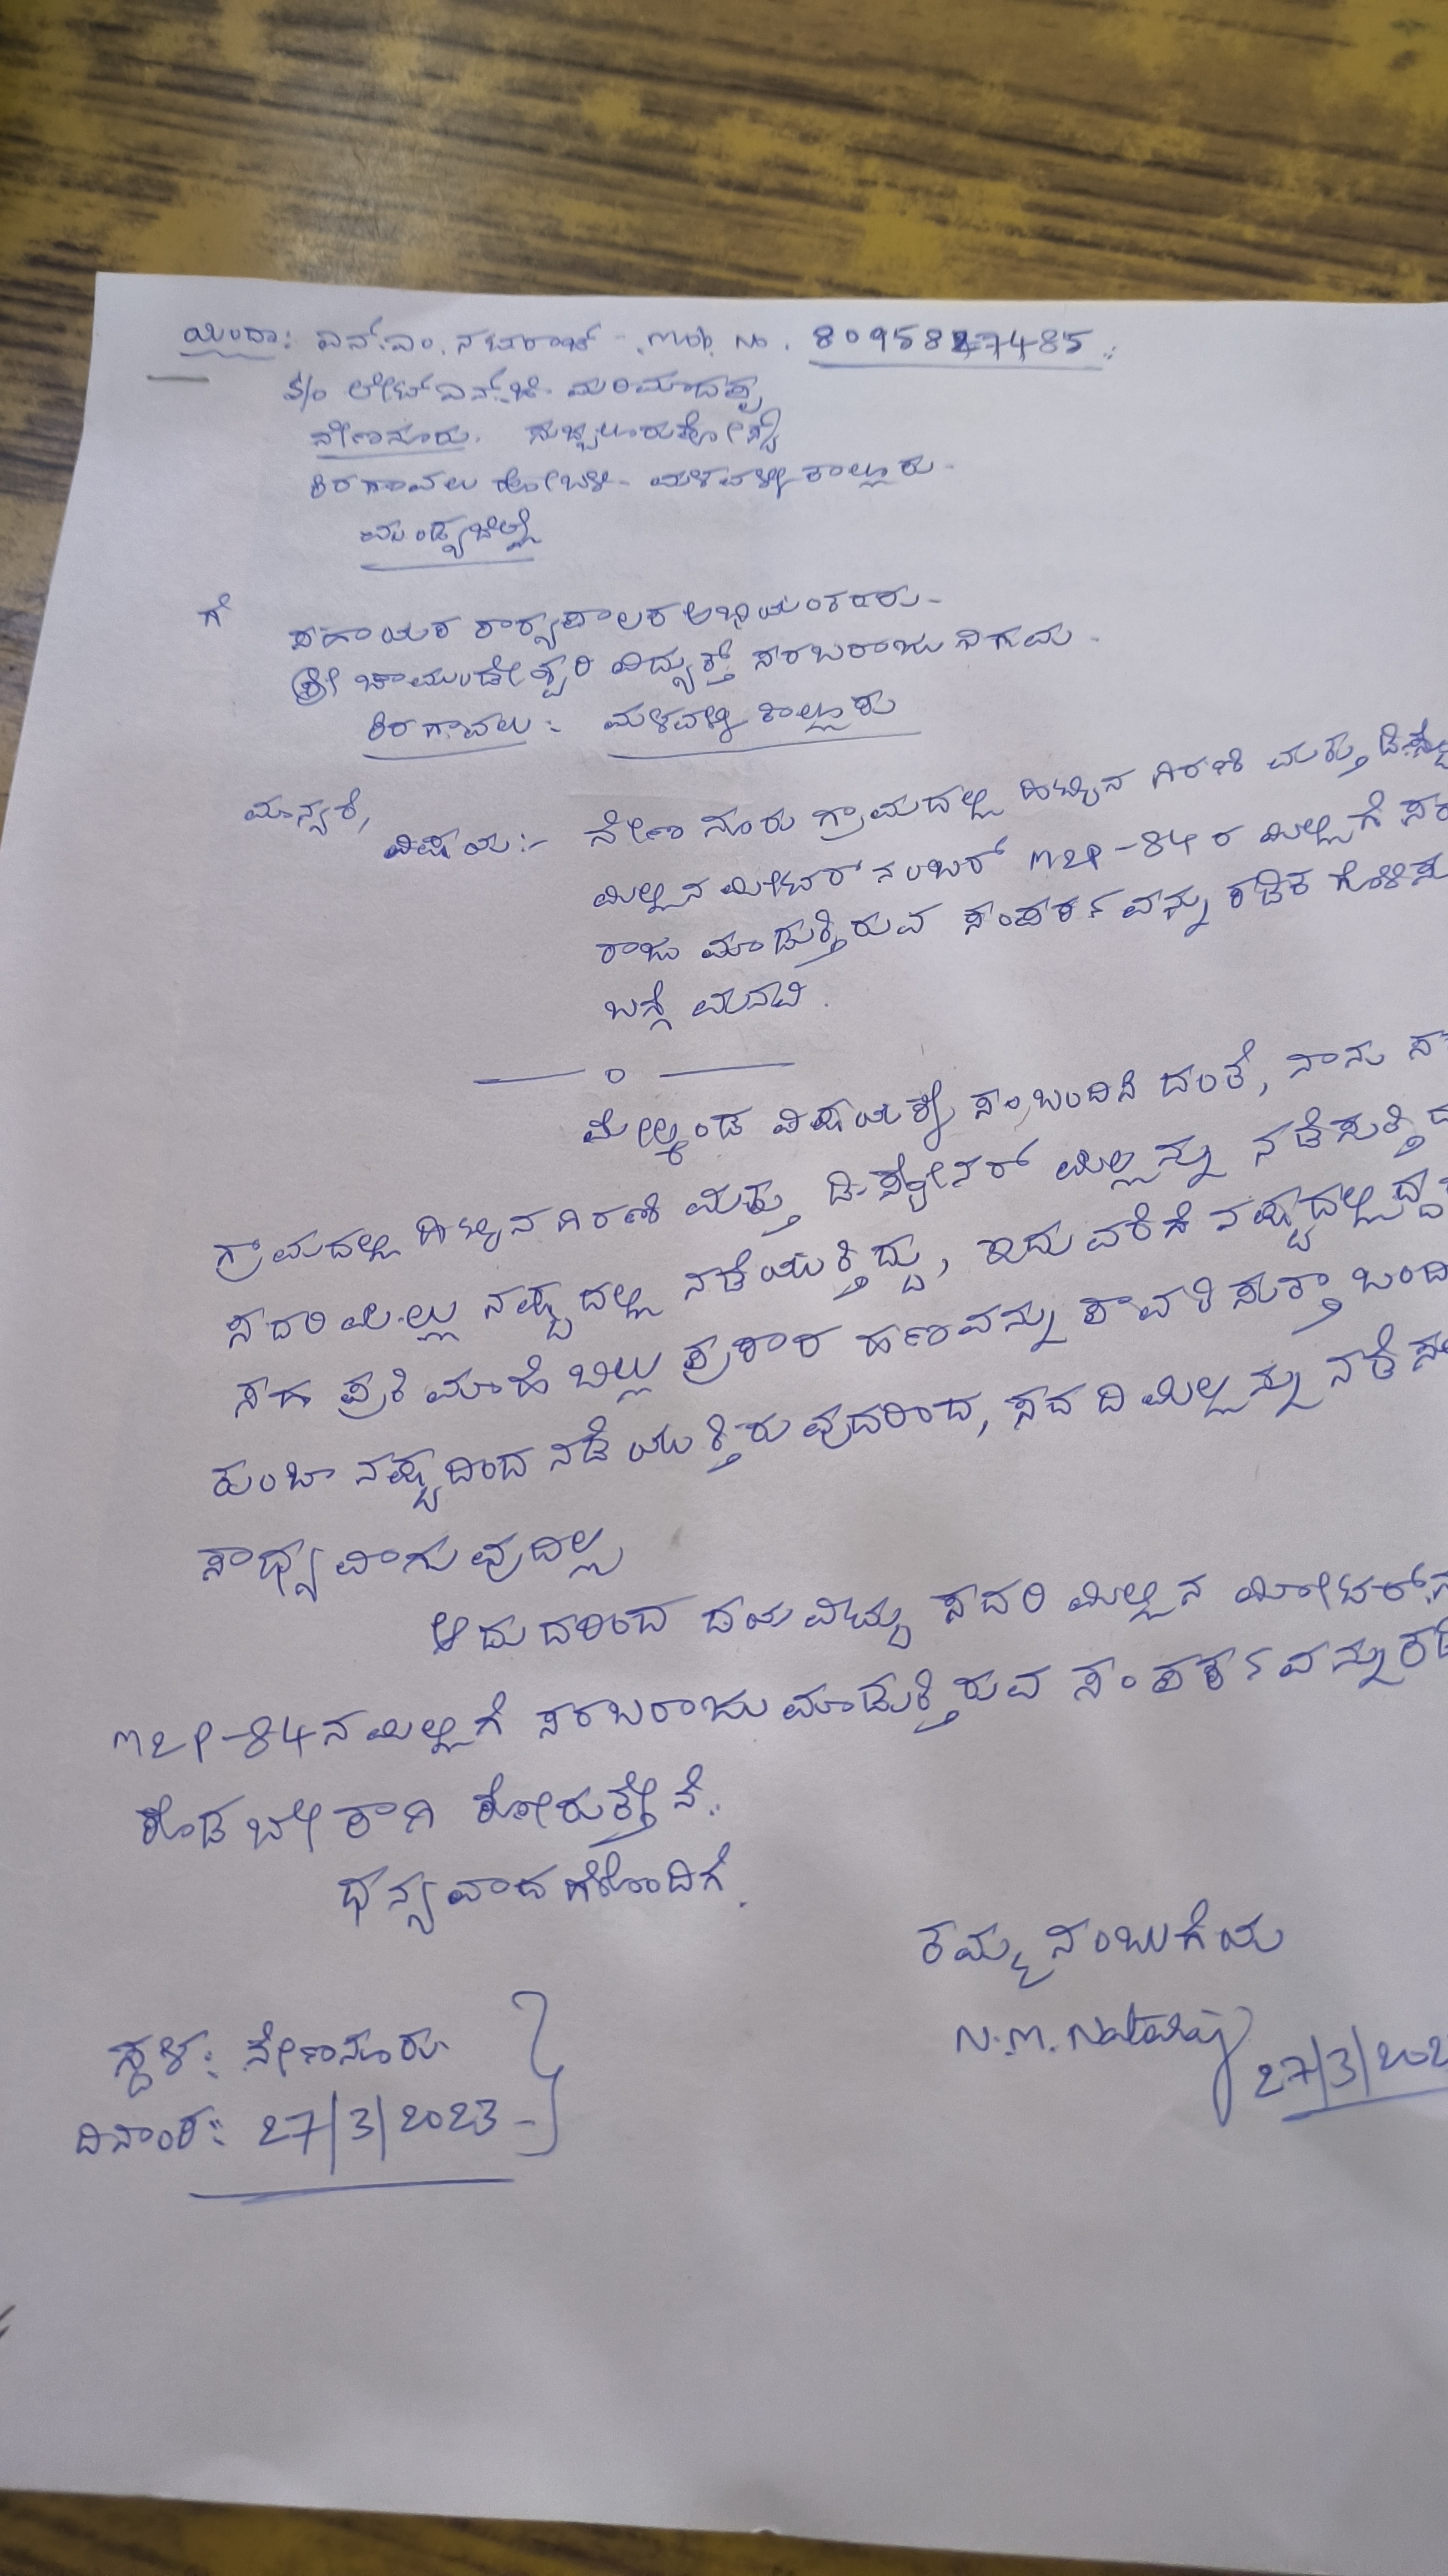 ಯಿಂದಾ: ಎನ್.ಎಂ. ನಟರಾಜ್ - Mob. No. 8095827485
S/o ಲೇಟ್ ಎನ್.ಜೆ. ಮರಿಮಾದಪ್ಪ
ನೇಣನೂರು.
ಕಿರಗಾವಲು ಹೋಬಳಿ - ಮಳವಳ್ಳಿ ತಾಲ್ಲೂಕು -
ಮಂಡ್ಯ ಜಿಲ್ಲೆ
ಗೆ
ಸಹಾಯಕ ಕಾರ್ಯಪಾಲಕ ಅಭಿಯಂತರರು -
ಶ್ರೀ ಚಾಮುಂಡೇಶ್ವರಿ ವಿದ್ಯುತ್ ಸರಬರಾಜು ನಿಗಮ -
ಕಿರಗಾವಲು : ಮಳವಳ್ಳಿ ತಾಲ್ಲೂಕು
ಮಾನ್ಯರೆ,
ವಿಷಯ :- ನೇಣನೂರು ಗ್ರಾಮದಲ್ಲಿ ಹಿಟ್ಟಿನ ಗಿರಣಿ ಮತ್ತು
ಮಿಲ್ಲಿನ ಮೀಟರ್ ನಂಬರ್ M2P-84 ರ ಮಿಲ್ಲಿಗೆ ಸರ
ರಾಜು ಮಾಡುತ್ತಿರುವ ಸಂಪರ್ಕವನ್ನು ಕಡಿತ ಗೊಳಿಸು
ಬಗ್ಗೆ ಮನವಿ.
— o —
ಮೇಲ್ಕಂಡ ವಿಷಯಕ್ಕೆ ಸಂಬಂದಿಸಿ ದಂತೆ, ನಾನು
ಗ್ರಾಮದಲ್ಲಿ ಹಿಟ್ಟಿನ ಗಿರಣಿ ಮತ್ತು ಡಿ-ಸ್ಟೋನರ್ ಮಿಲ್ಲನ್ನು ನಡೆಸುತ್ತಿದ
ಸದರಿ ಮಿಲ್ಲು ನಷ್ಟದಲ್ಲಿ ನಡೆಯುತ್ತಿದ್ದು, ಇದುವರೆಗೆ ನಷ್ಟದಲ್ಲಿದ್ದ
ಸಹ ಪ್ರತಿ ಮಾಹೆ ಬಿಲ್ಲು ಪ್ರಕಾರ ಹಣವನ್ನು ಪಾವತಿಸುತ್ತಾ ಬಂದಿ
ತುಂಬಾ ನಷ್ಟದಿಂದ ನಡೆಯುತ್ತಿರುವುದರಿಂದ, ಸದರಿ ಮಿಲ್ಲನ್ನು ನಡೆಸ
ಸಾಧ್ಯವಾಗುವುದಿಲ್ಲ
ಆದುದರಿಂದ ದಯವಿಟ್ಟು ಸದರಿ ಮಿಲ್ಲಿನ ಮೀಟರ್
M2P-84ನ ಮಿಲ್ಲಿಗೆ ಸರಬರಾಜು ಮಾಡುತ್ತಿರುವ ಸಂಪರ್ಕವನ್ನು ಕಡಿ
ಕೊಡಬೇಕಾಗಿ ಕೋರುತ್ತೇನೆ.
ಧನ್ಯವಾದಗಳೊಂದಿಗೆ.
ತಮ್ಮ ನಂಬುಗೆಯ
N.M. Nataraj
27/3/202
ಸ್ಥಳ: ನೇಣನೂರು
ದಿನಾಂಕ: 27/3/2023